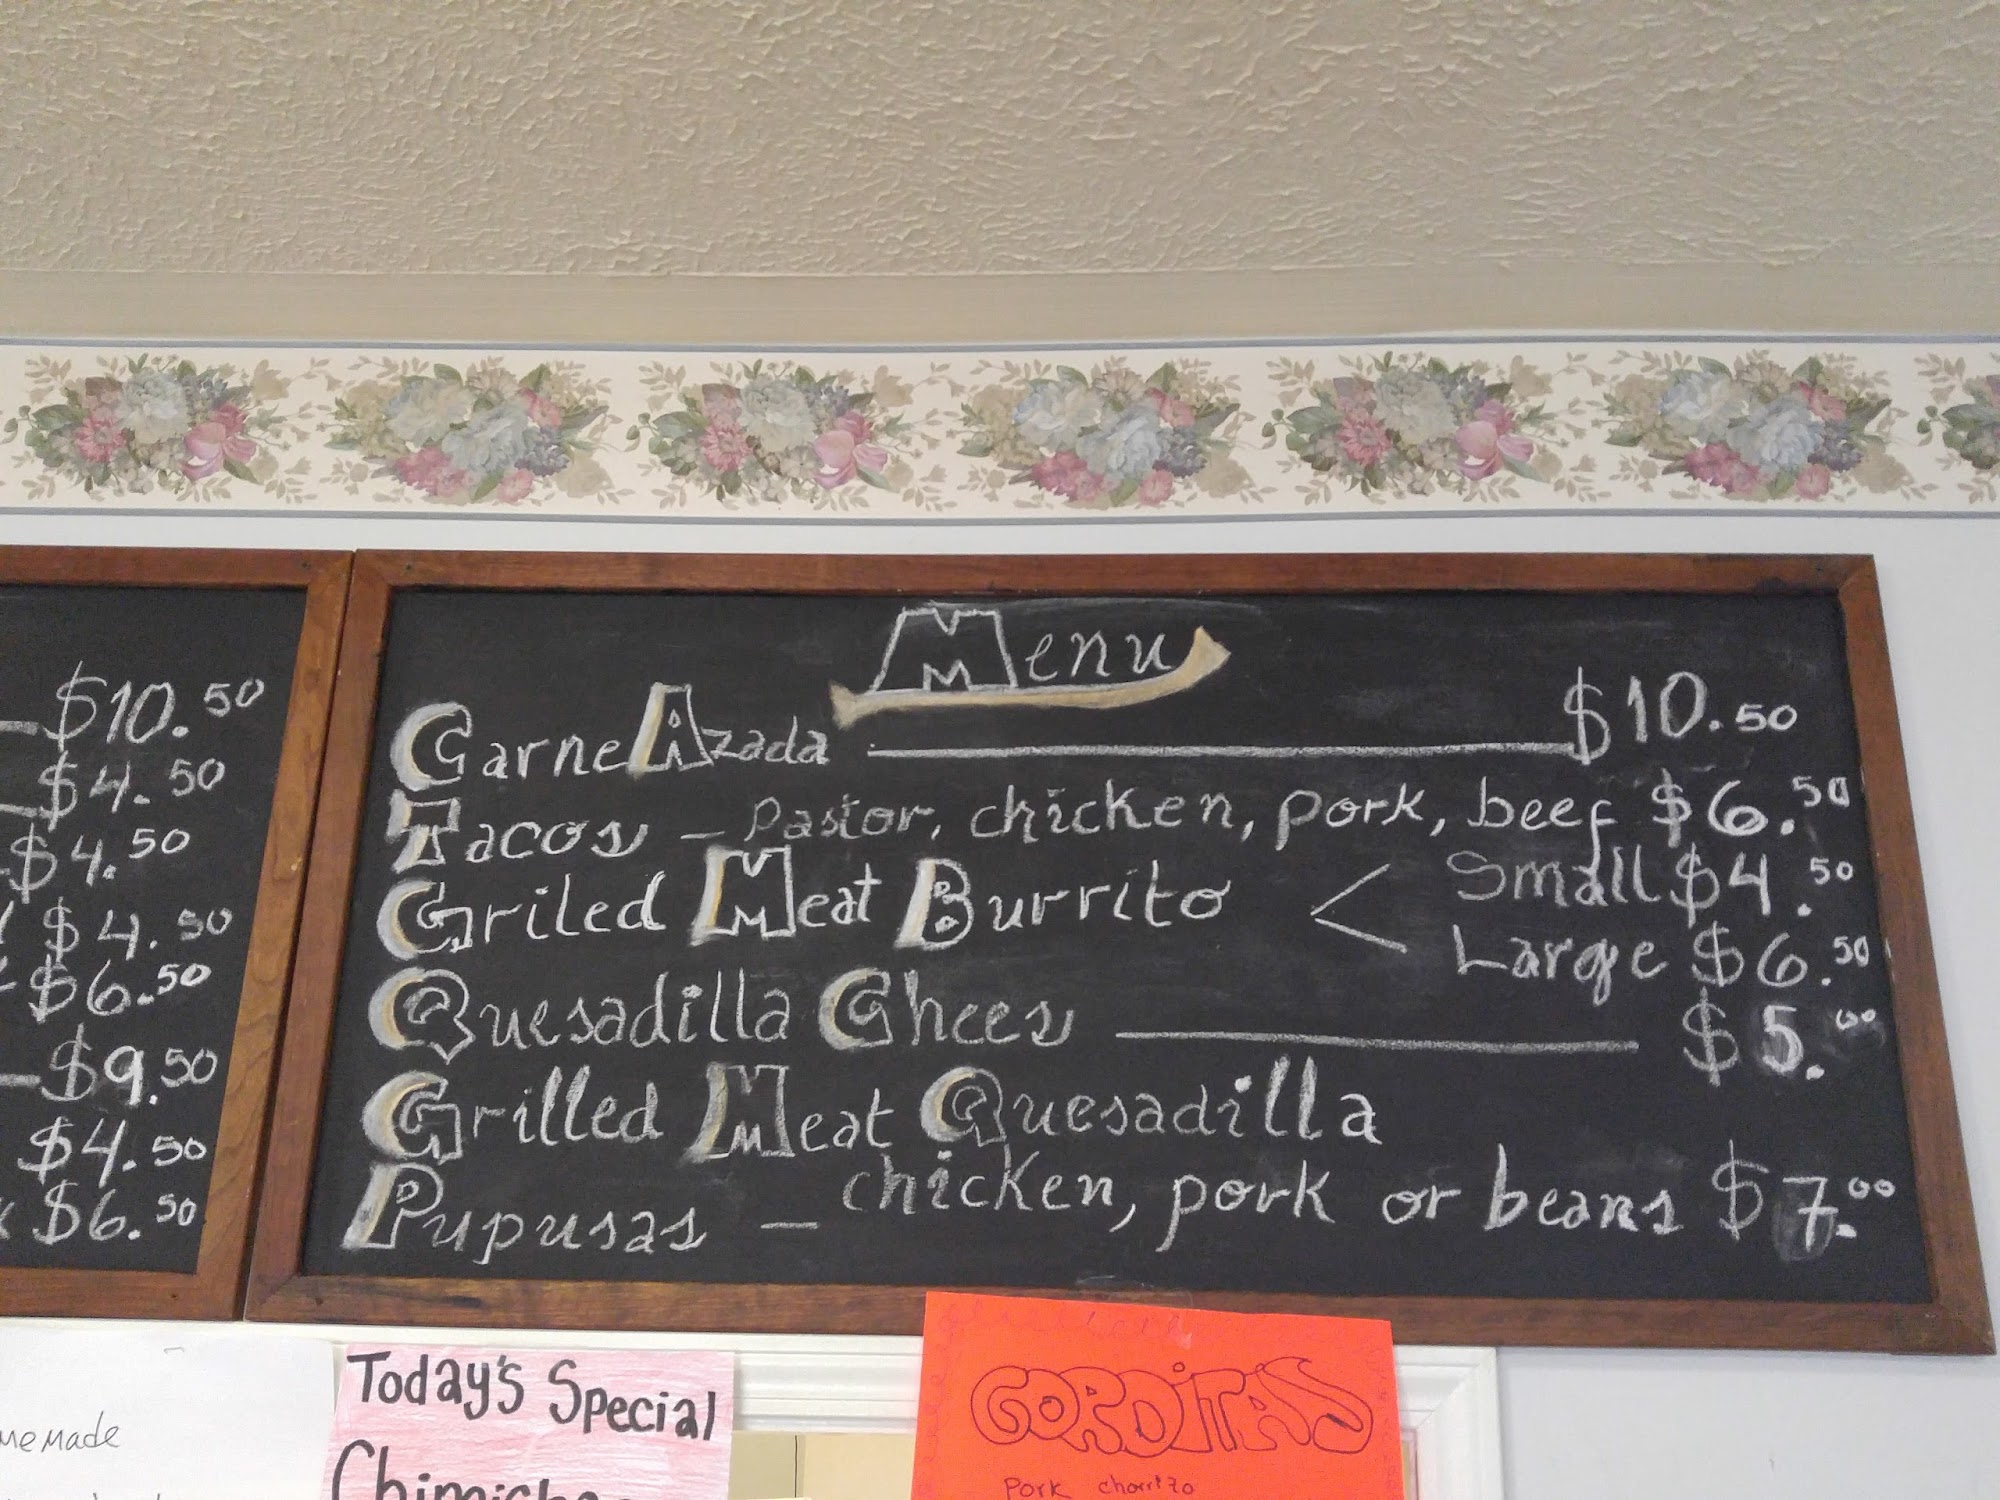 $10.50
$4.50
$4.50
$4.50
$6.50
$9.50
$4.50
$6.50
Menu
Carne Azada $10.50
Tacos - Pastor, chicken, pork, beef $6.50
Griled Meat Burrito < Small $4.50
Large $6.50
Quesadilla Chees $5.00
Grilled Meat Quesadilla
Pupusas - chicken, pork or beans $7.00
Today's Special
GORDITAS
Pork chorrizo